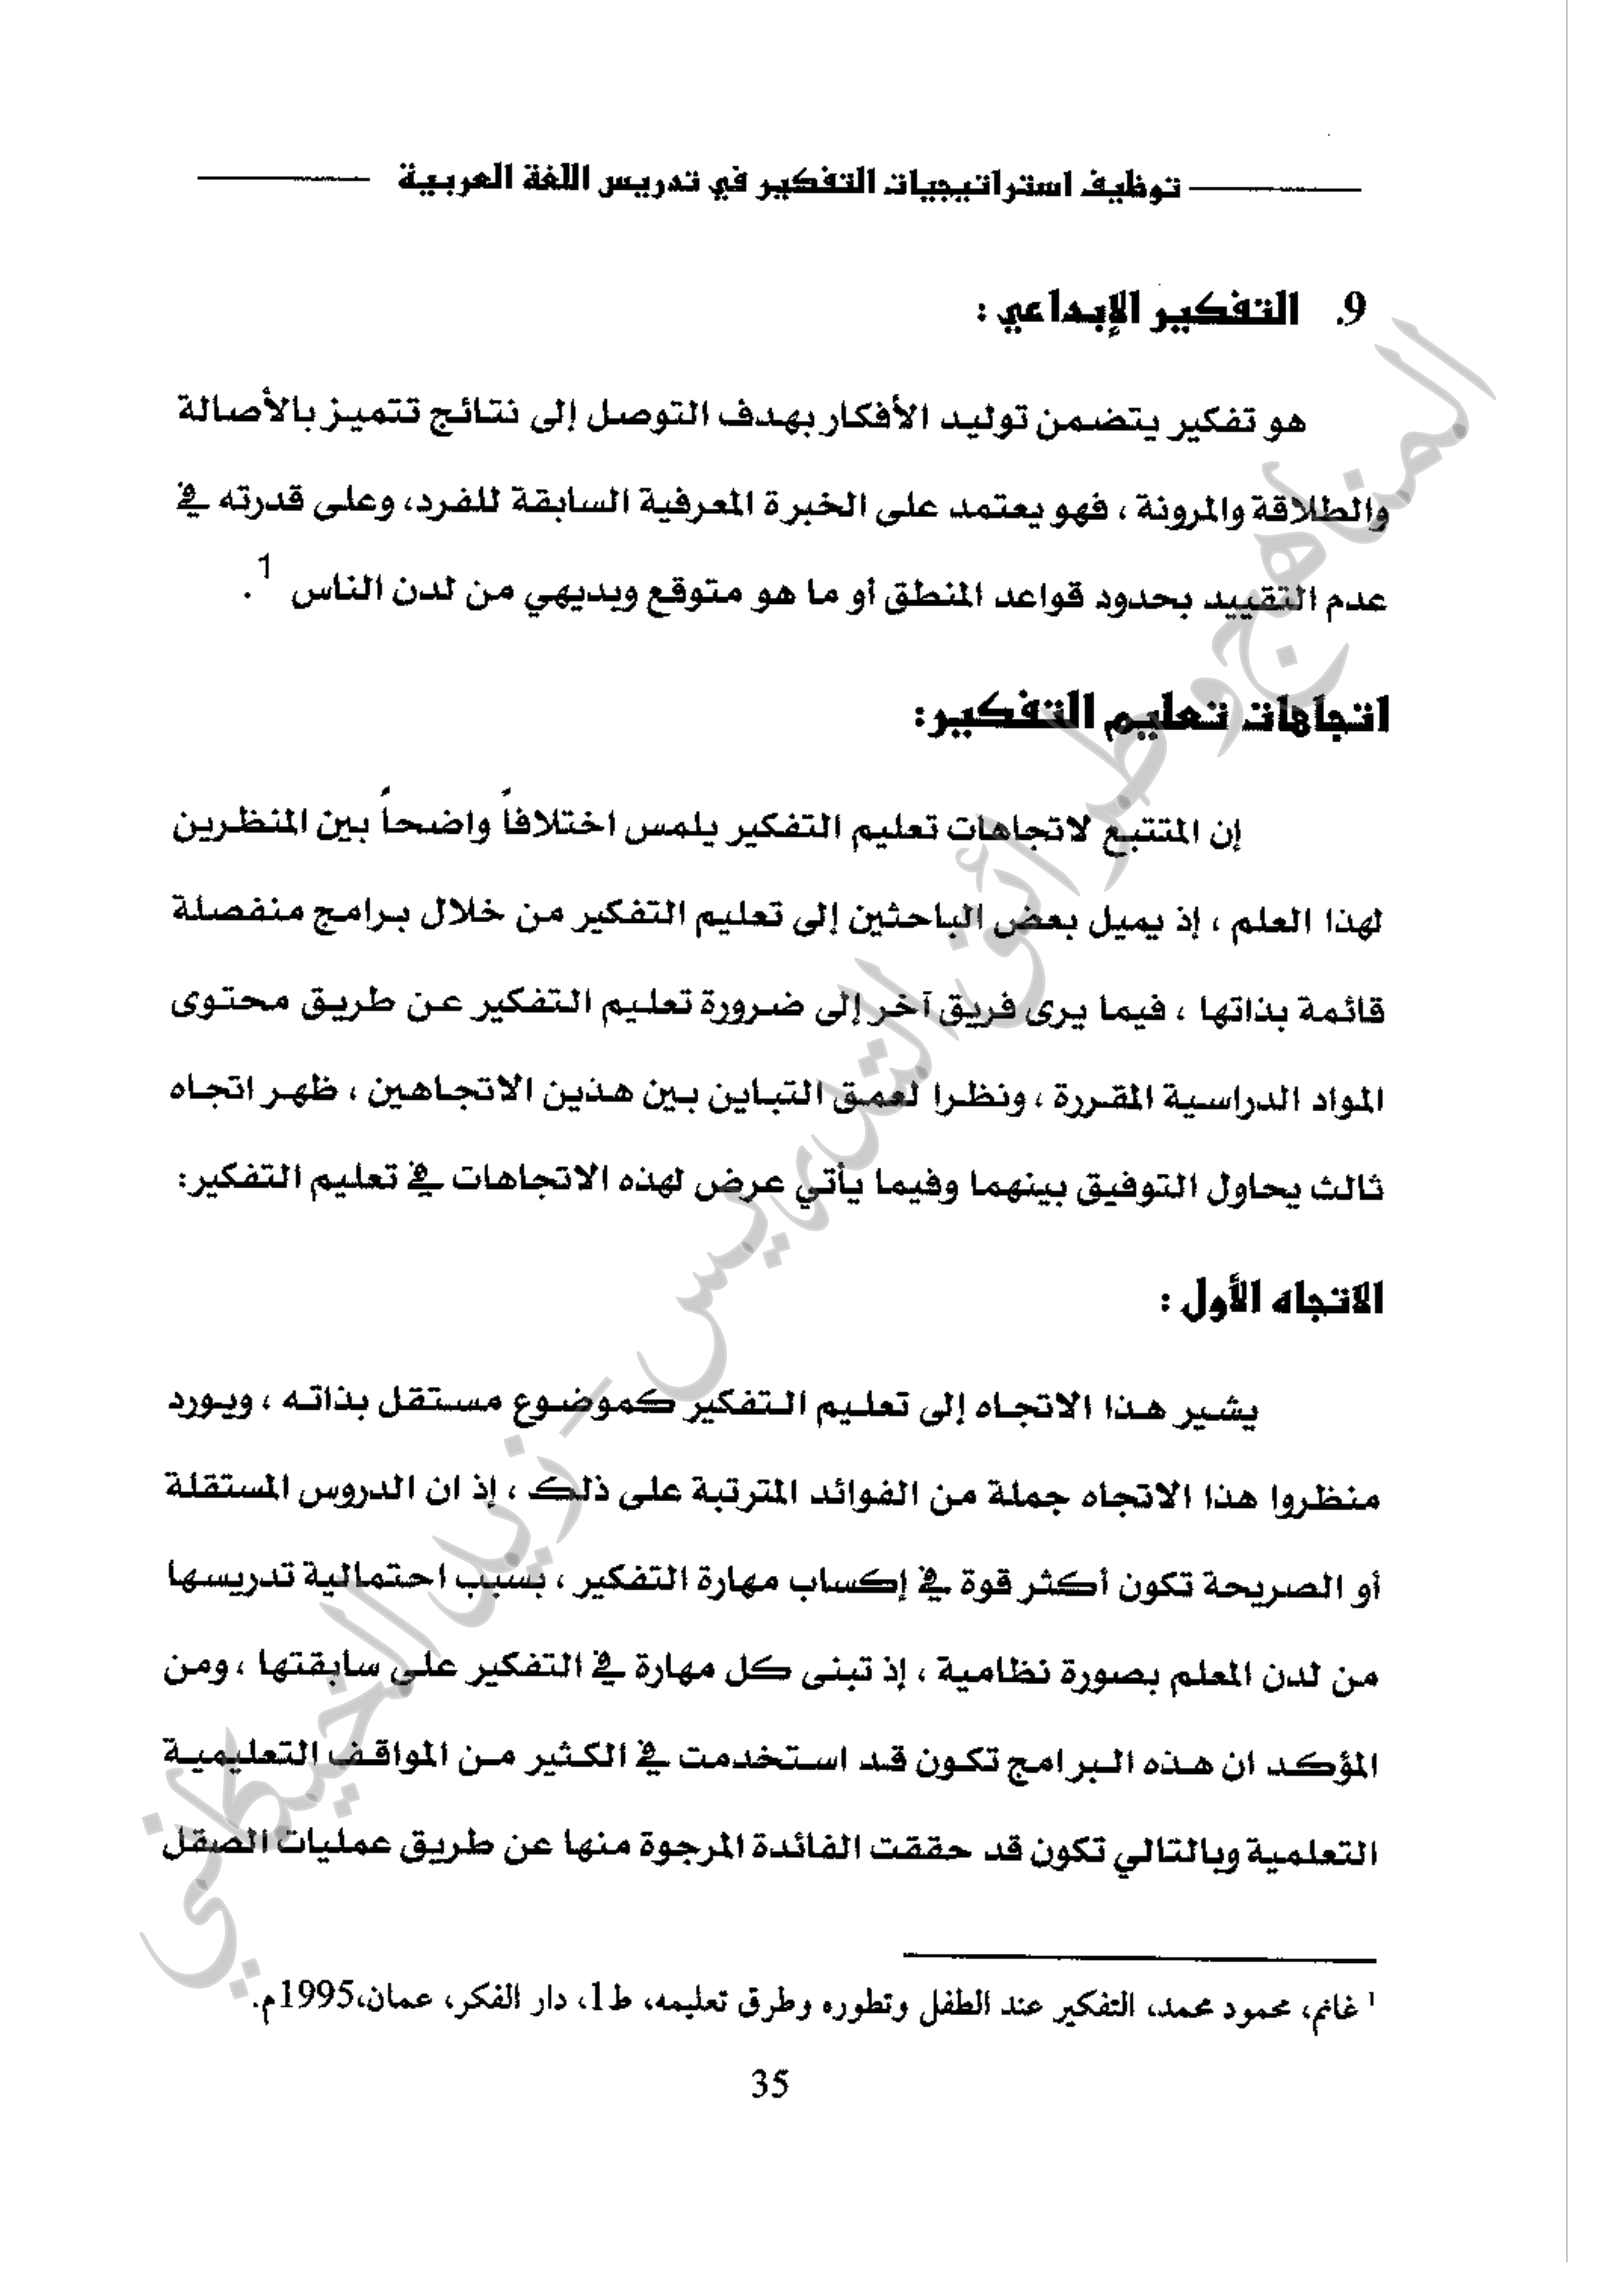 توظيف استراتيجيات التفكير في تدريس اللغة العربية
9. التفكير الإبداعي :
هو تفكير يتضمن توليد الأفكار بهدف التوصل إلى نتائج تتميز بالأصالة
والطلاقة والمرونة ، فهو يعتمد على الخبرة المعرفية السابقة للفرد، وعلى قدرته في
عدم التقييد بحدود قواعد المنطق أو ما هو متوقع وبديهي من لدن الناس 1.
اتجاهات تعليم التفكير:
إن المتتبع لاتجاهات تعليم التفكير يلمس اختلافاً واضحاً بين المنظرين
لهذا العلم ، إذ يميل بعض الباحثين إلى تعليم التفكير من خلال برامج منفصلة
قائمة بذاتها ، فيما يرى فريق آخر إلى ضرورة تعليم التفكير عن طريق محتوى
المواد الدراسية المقررة ، ونظرا لعمق التباين بين هذين الاتجاهين ، ظهر اتجاه
ثالث يحاول التوفيق بينهما وفيما يأتي عرض لهذه الاتجاهات في تعليم التفكير:
الاتجاه الأول :
يشير هذا الاتجاه إلى تعليم التفكير كموضوع مستقل بذاته ، ويورد
منظروا هذا الاتجاه جملة من الفوائد المترتبة على ذلك ، إذ ان الدروس المستقلة
أو الصريحة تكون أكثر قوة في إكساب مهارة التفكير ، بسبب احتمالية تدريسها
من لدن المعلم بصورة نظامية ، إذ تبنى كل مهارة في التفكير على سابقتها ، ومن
المؤكد ان هذه البرامج تكون قد استخدمت في الكثير من المواقف التعليمية
التعلمية وبالتالي تكون قد حققت الفائدة المرجوة منها عن طريق عمليات الصقل
1 غانم، محمود محمد، التفكير عند الطفل وتطوره وطرق تعليمه، ط1، دار الفكر، عمان،1995م.
35
المناهج وطرائق التدريس - زيد الخيكاني